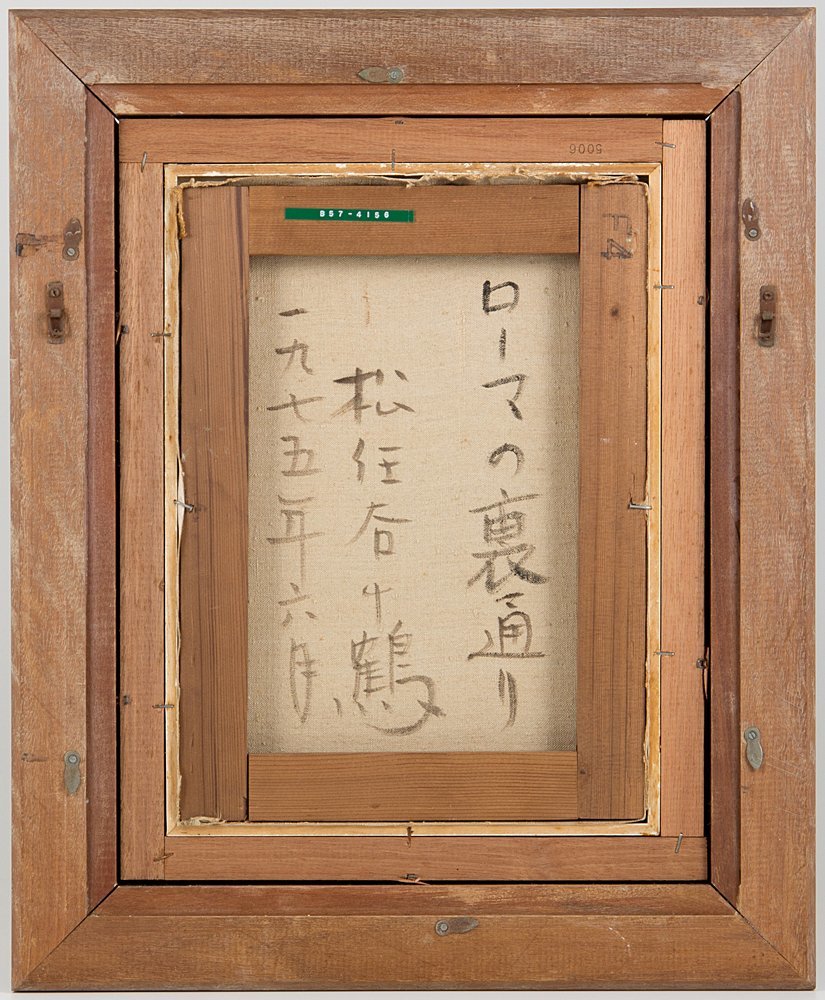 B57-4156
F4
ローマの裏通り
松任谷千鶴
一九七五年六月